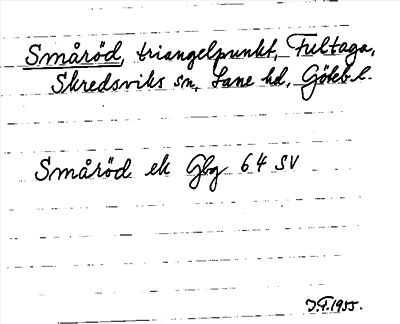 Småröd, triangelpunkt, Fultaga,
Skredsviks sn, Lane hd, Göteb. l.
Småröd ek Gbg 64 SV
J.F. 1955.